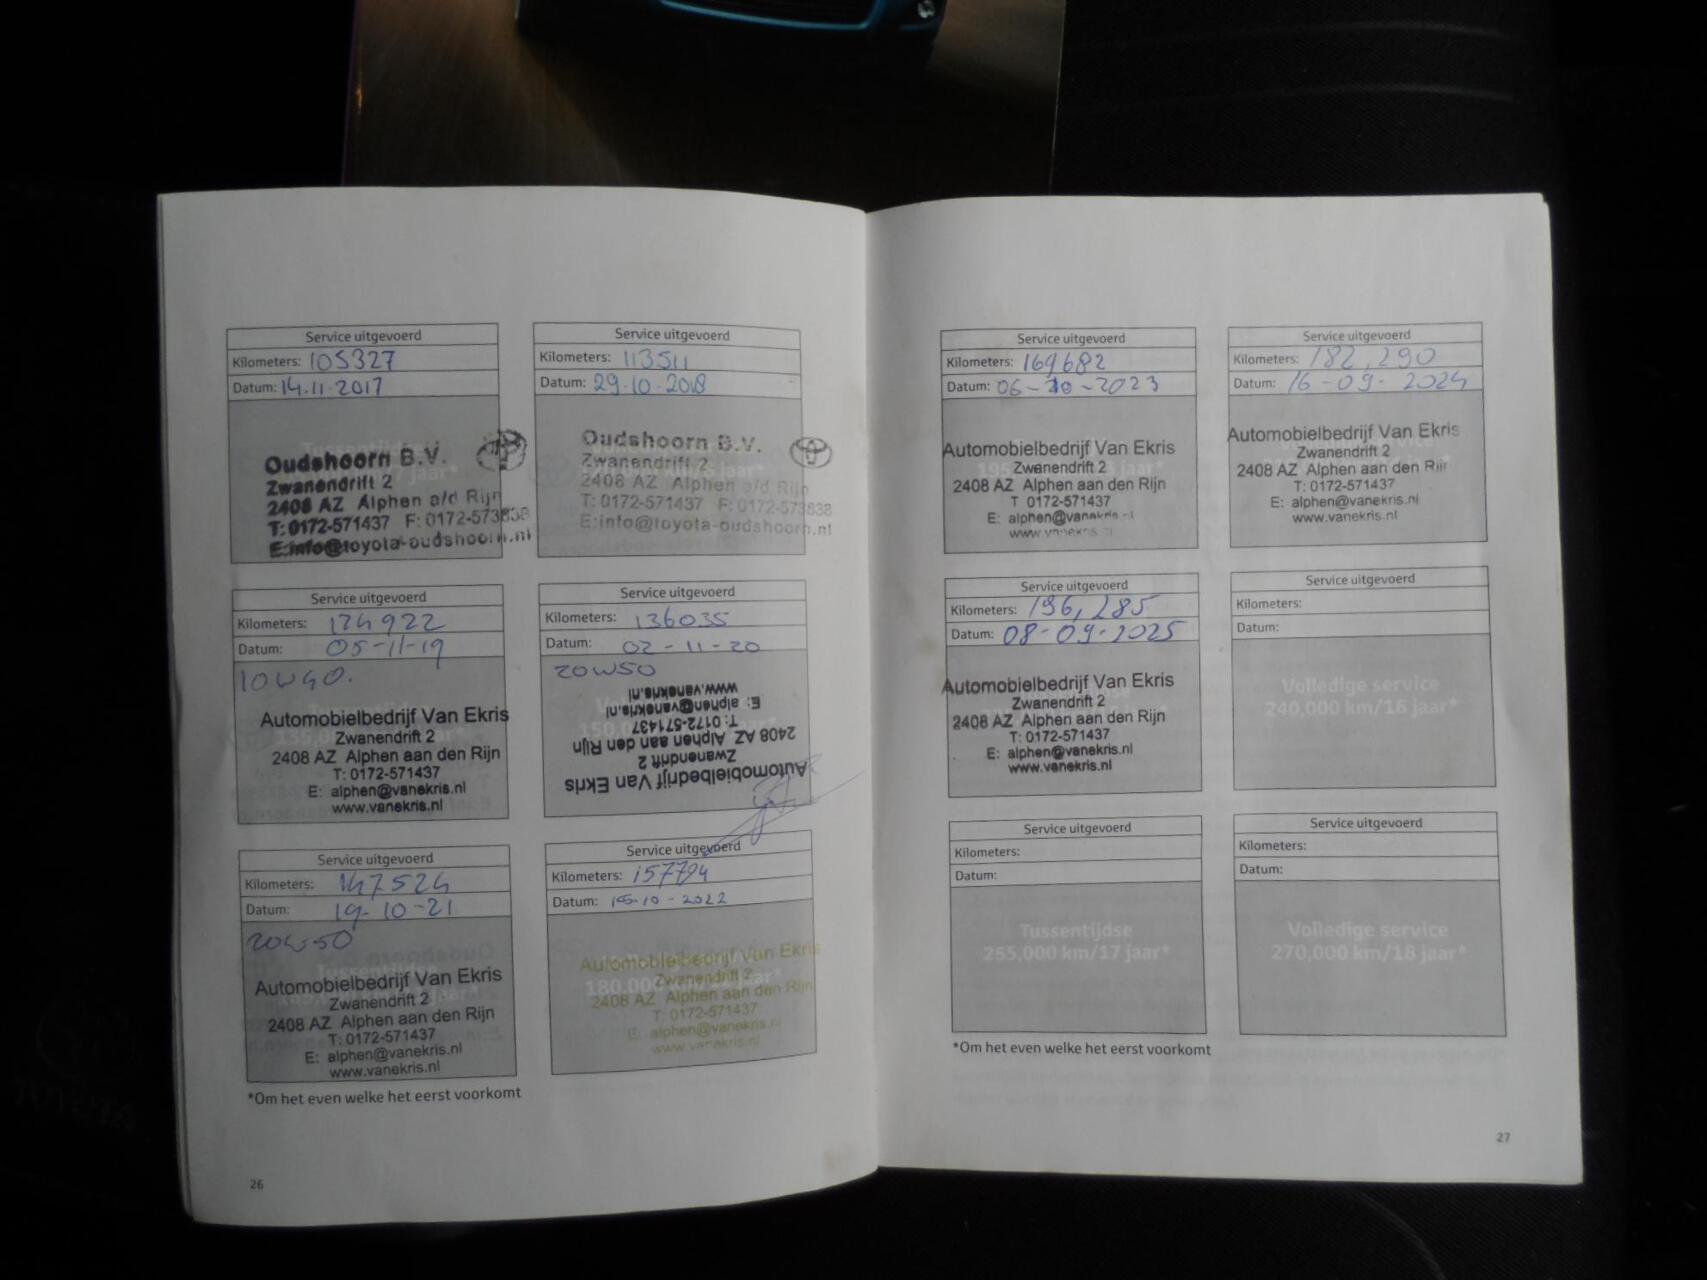 Service uitgevoerd
Kilometers: 105327
Datum: 14.11.2017
Oudshoorn B.V.
Zwanendrift 2
2408 AZ Alphen a/d Rijn
T: 0172-571437 F: 0172-573838
E:info@toyota-oudshoorn.nl
Service uitgevoerd
Kilometers: 113511
Datum: 29-10-2018
Oudshoorn B.V.
Zwanendrift 2
2408 AZ Alphen a/d Rijn
T: 0172-571437 F: 0172-573838
E:info@toyota-oudshoorn.nl
Service uitgevoerd
Kilometers: 124922
Datum: 05-11-19
10W40.
Automobielbedrijf Van Ekris
Zwanendrift 2
2408 AZ Alphen aan den Rijn
T: 0172-571437
E: alphen@vanekris.nl
www.vanekris.nl
Service uitgevoerd
Kilometers: 136035
Datum: 02-11-20
20W50
Automobielbedrijf Van Ekris
Zwanendrift 2
2408 AZ Alphen aan den Rijn
T: 0172-571437
E: alphen@vanekris.nl
www.vanekris.nl
Service uitgevoerd
Kilometers: 147524
Datum: 19-10-21
20W50
Automobielbedrijf Van Ekris
Zwanendrift 2
2408 AZ Alphen aan den Rijn
T: 0172-571437
E: alphen@vanekris.nl
www.vanekris.nl
Service uitgevoerd
Kilometers: 157794
Datum: -10-2022
180.000
Automobielbedrijf Van Ekris
Zwanendrift 2
2408 AZ Alphen aan den Rijn
T: 0172-571437
E: alphen@vanekris.nl
www.vanekris.nl
*Om het even welke het eerst voorkomt
26
Service uitgevoerd
Kilometers: 169682
Datum: 06-10-2023
Automobielbedrijf Van Ekris
Zwanendrift 2
2408 AZ Alphen aan den Rijn
T 0172-571437
E: alphen@vanekris.nl
www.vanekris.nl
Service uitgevoerd
Kilometers: 182,290
Datum: 16-09-2024
Automobielbedrijf Van Ekris
Zwanendrift 2
2408 AZ Alphen aan den Rijn
T: 0172-571437
E: alphen@vanekris.nl
www.vanekris.nl
Service uitgevoerd
Kilometers: 196,285
Datum: 08-09-2025
Automobielbedrijf Van Ekris
Zwanendrift 2
2408 AZ Alphen aan den Rijn
T: 0172-571437
E: alphen@vanekris.nl
www.vanekris.nl
Service uitgevoerd
Kilometers:
Datum:
Volledige service
240,000 km/16 jaar*
Service uitgevoerd
Kilometers:
Datum:
Tussentijdse
255,000 km/17 jaar*
Service uitgevoerd
Kilometers:
Datum:
Volledige service
270,000 km/18 jaar*
*Om het even welke het eerst voorkomt
27